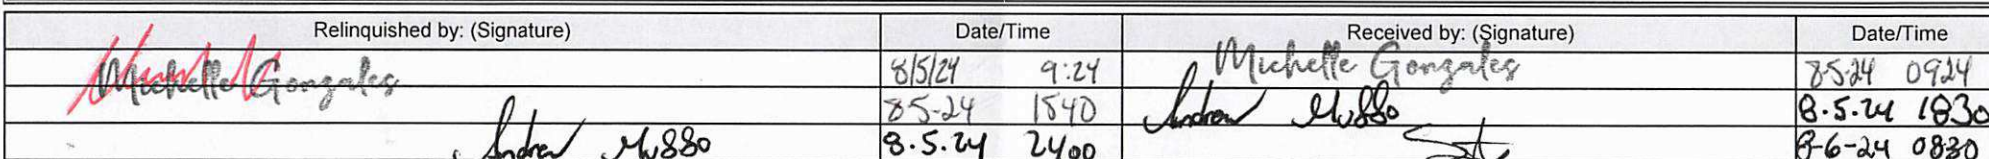 Relinquished by: (Signature) Date/Time Received by: (Signature) Date/Time
8/5/24 9:24 Michelle Gonzales 8-5-24 0924
Michelle Gonzales 8-5-24 1540 Andrew Musso 8.5.24 1830
Andrew Musso 8.5.24 2400 8-6-24 0830